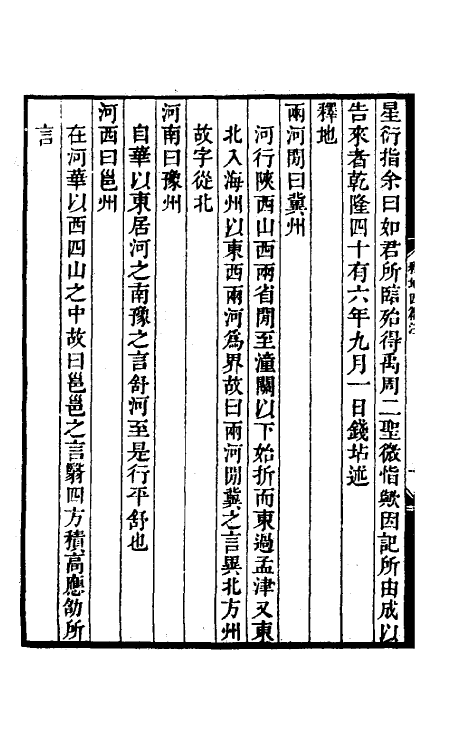 星衍指余曰如君所臨殆得禹周二聖微恉歟因記所由成以
告來者乾隆四十有六年九月一日錢坫述
釋地
兩河閒曰冀州
河行陝西山西兩省閒至潼關以下始折而東過孟津又東
北入海州以東西兩河爲界故曰兩河閒冀之言異北方州
故字從北
河南曰豫州
自華以東居河之南豫之言舒河至是行平舒也
河西曰邕州
在河華以西四山之中故曰邕邕之言翳四方積高應劭所
言
釋地四篇注